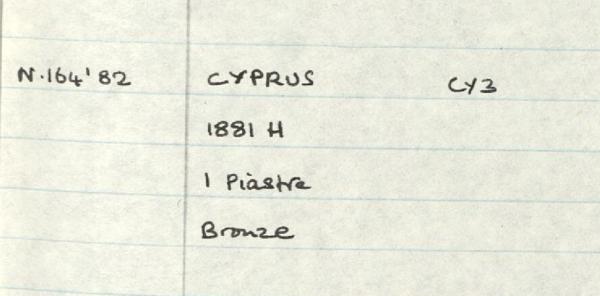 N.164'82 CYPRUS CY3
1881 H
1 Piastre
Bronze